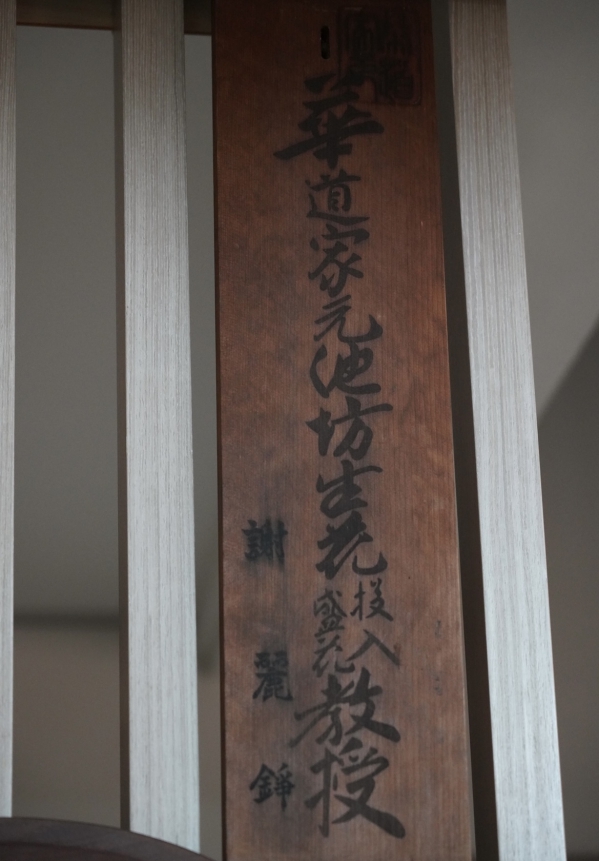 華道家元池坊生花投入盛花教授
謝麗錚